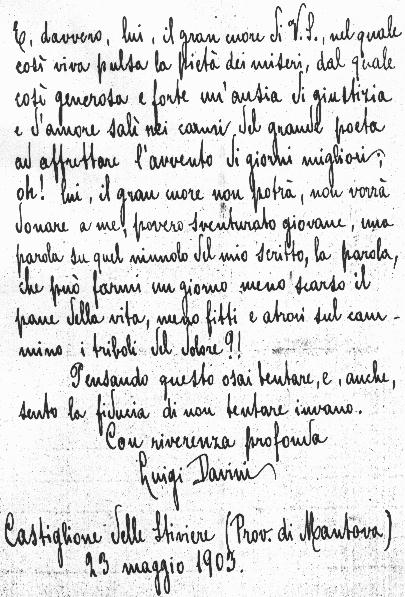 E, davvero, lui, il gran cuore di V. S., nel quale
così viva pulsa la pietà dei miseri, dal quale
così generosa e forte un'ansia di giustizia
e d'amore salì nei carmi del grande poeta
ad affrettare l'avvento di giorni migliori;
oh! lui, il gran cuore non potrà, non vorrà
donare a me, povero sventurato giovane, una
parola su quel minuolo del mio scritto, la parola,
che può farmi un giorno meno scarso il
pane della vita, meno fitti e atroci sul cam-
mino i triboli del dolore?!
Pensando questo osai tentare, e, anche,
sento la fiducia di non tentare invano.
Con riverenza profonda
Luigi Davini
Castiglione delle Stiviere (Prov. di Mantova)
23 maggio 1903.